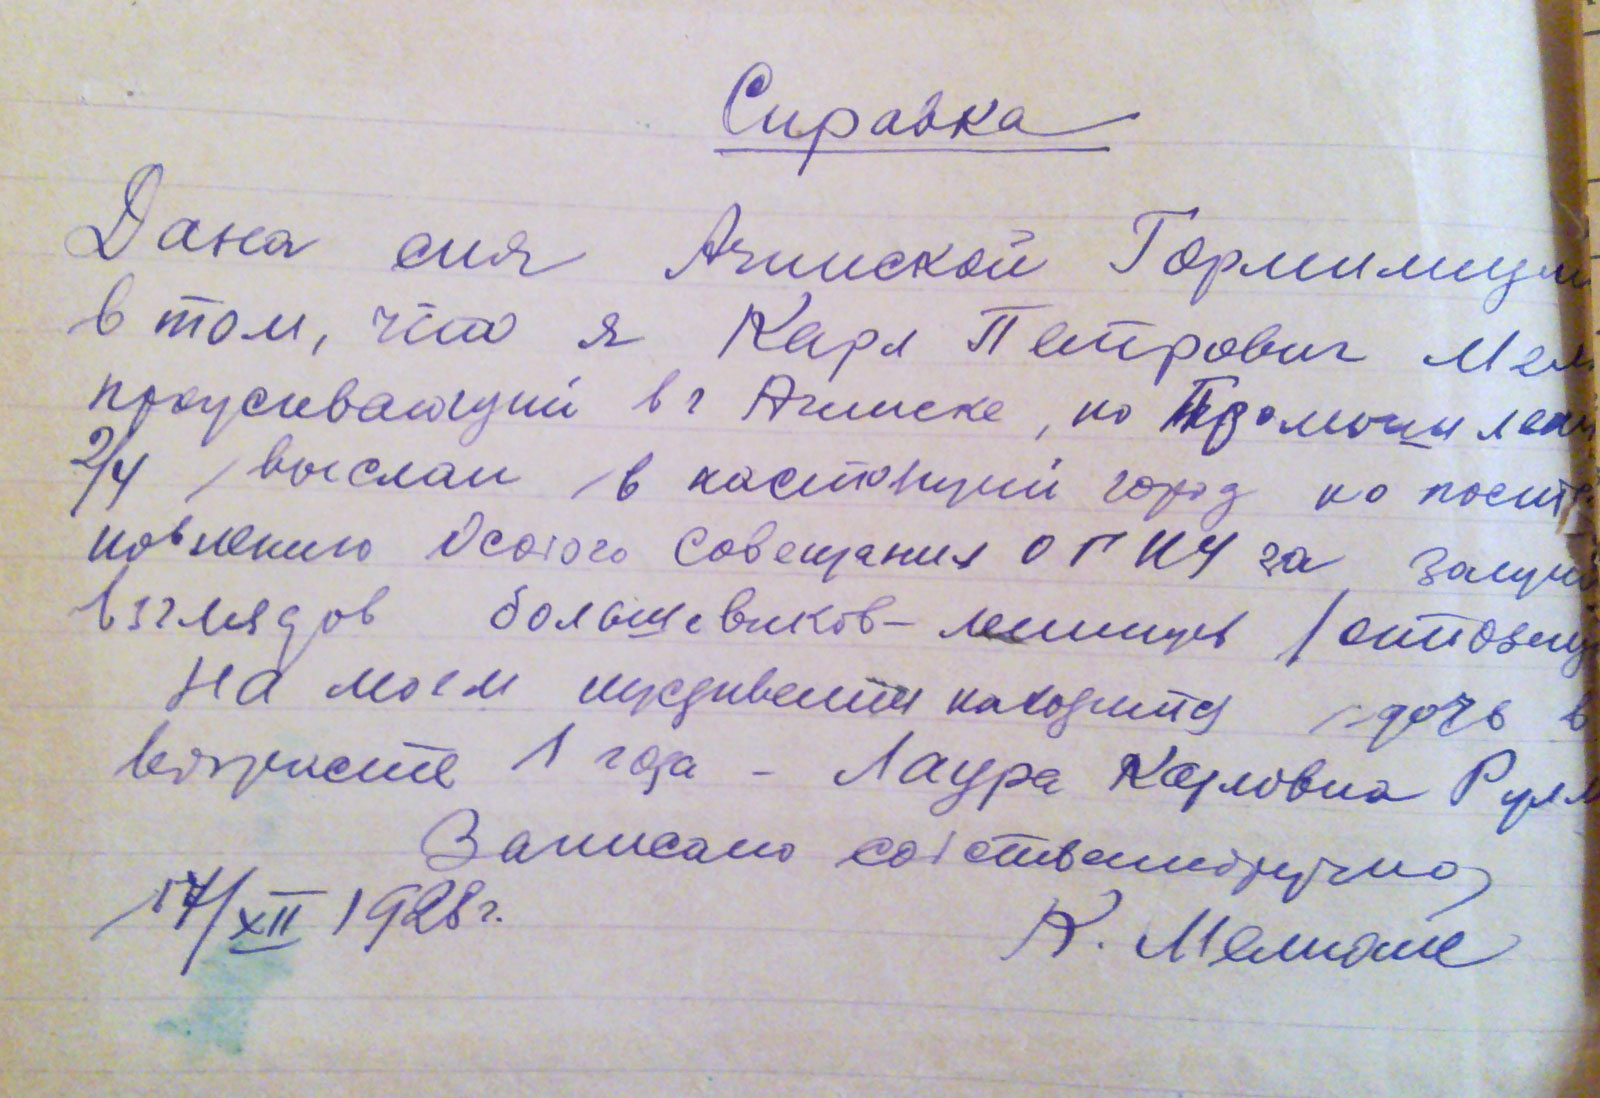 Справка
Дана сия Ачинской Гормилиции
в том, что я Карл Петрович
проживающий в г Ачинске, по
2/4 выслан в настоящий город по поста
новлению Особого Совещания ОГПУ за
взглядов большевиков-ленинцев
На моем иждивении находится дочь в
возрасте 1 года - Лаура Карловна
Записано собственноручно
17/XII 1928 г. К.